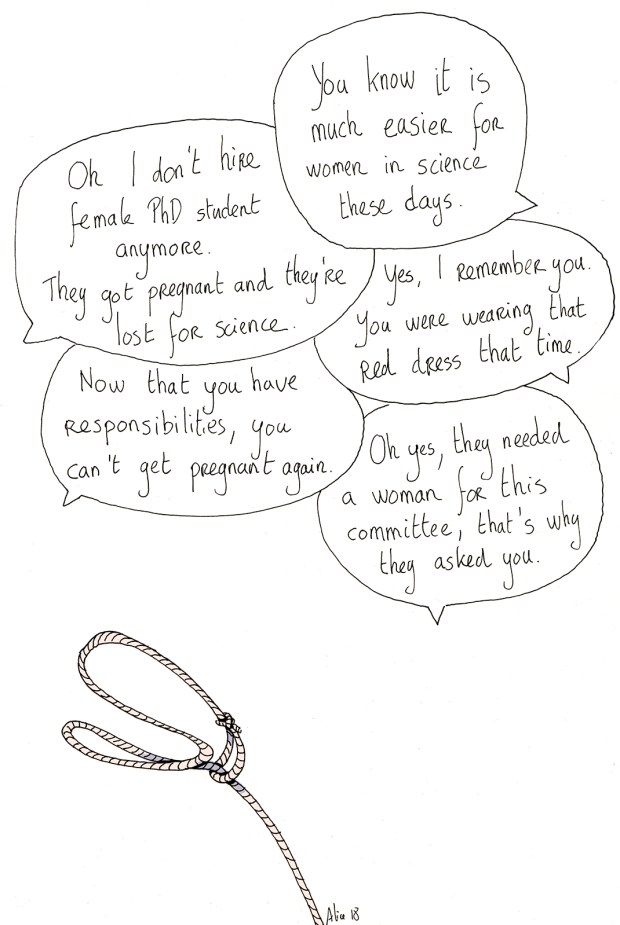 You know it is
much easier for
women in science
these days.
Oh I don't hire
female PhD student
anymore.
They got pregnant and they're
lost for science.
Yes, I remember you.
You were wearing that
red dress that time.
Now that you have
responsibilities, you
can't get pregnant again.
Oh yes, they needed
a woman for this
committee, that's why
they asked you.
18